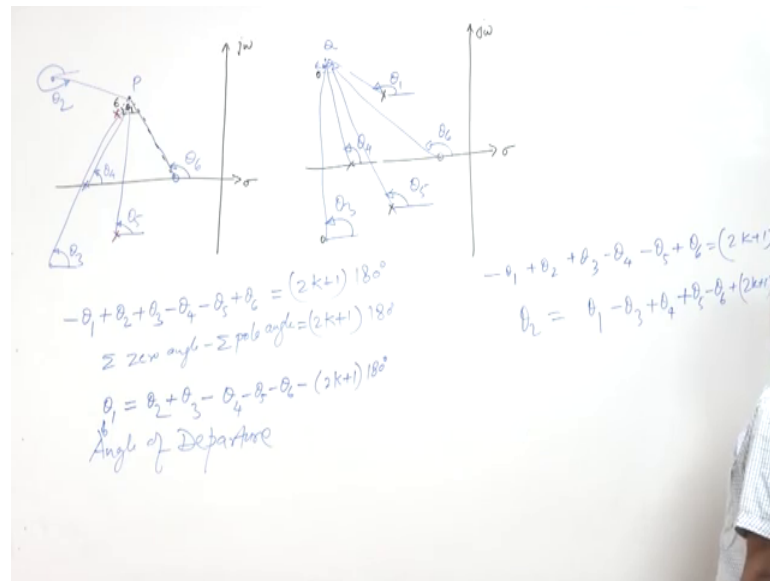 jω
P
θ₂
θ₄
θ₆
σ
θ₅
θ₃
jω
Q
θ₁
θ₆
σ
θ₄
θ₅
θ₃
-θ₁+θ₂+θ₃-θ₄-θ₅+θ₆ = (2k+1) 180°
Σ zero angle - Σ pole angle = (2k+1) 180
θ₁ = θ₂+θ₃-θ₄-θ₅-θ₆-(2k+1)180°
Angle of Departure
-θ₁+θ₂+θ₃-θ₄-θ₅+θ₆=(2k+1)
θ₂ = θ₁-θ₃+θ₄+θ₅-θ₆+(2k+1)